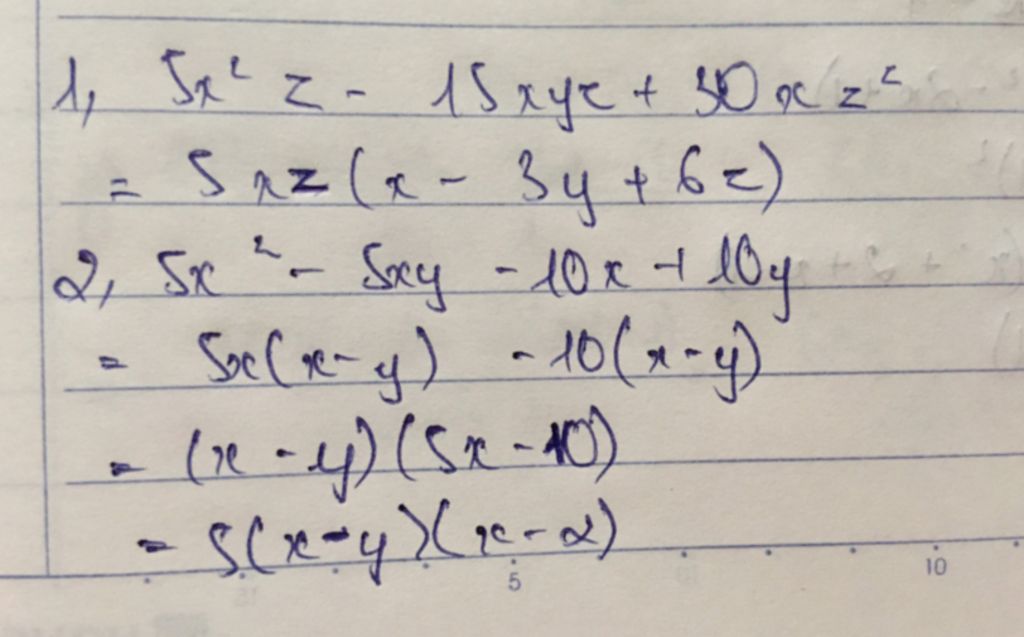 1, 5x² z - 15xyz + 30xz²
= 5xz(x - 3y + 6z)
2, 5x² - 5xy - 10x + 10y
= 5x(x-y) - 10(x-y)
= (x-y)(5x-10)
= 5(x-y)(x-2)
5 10